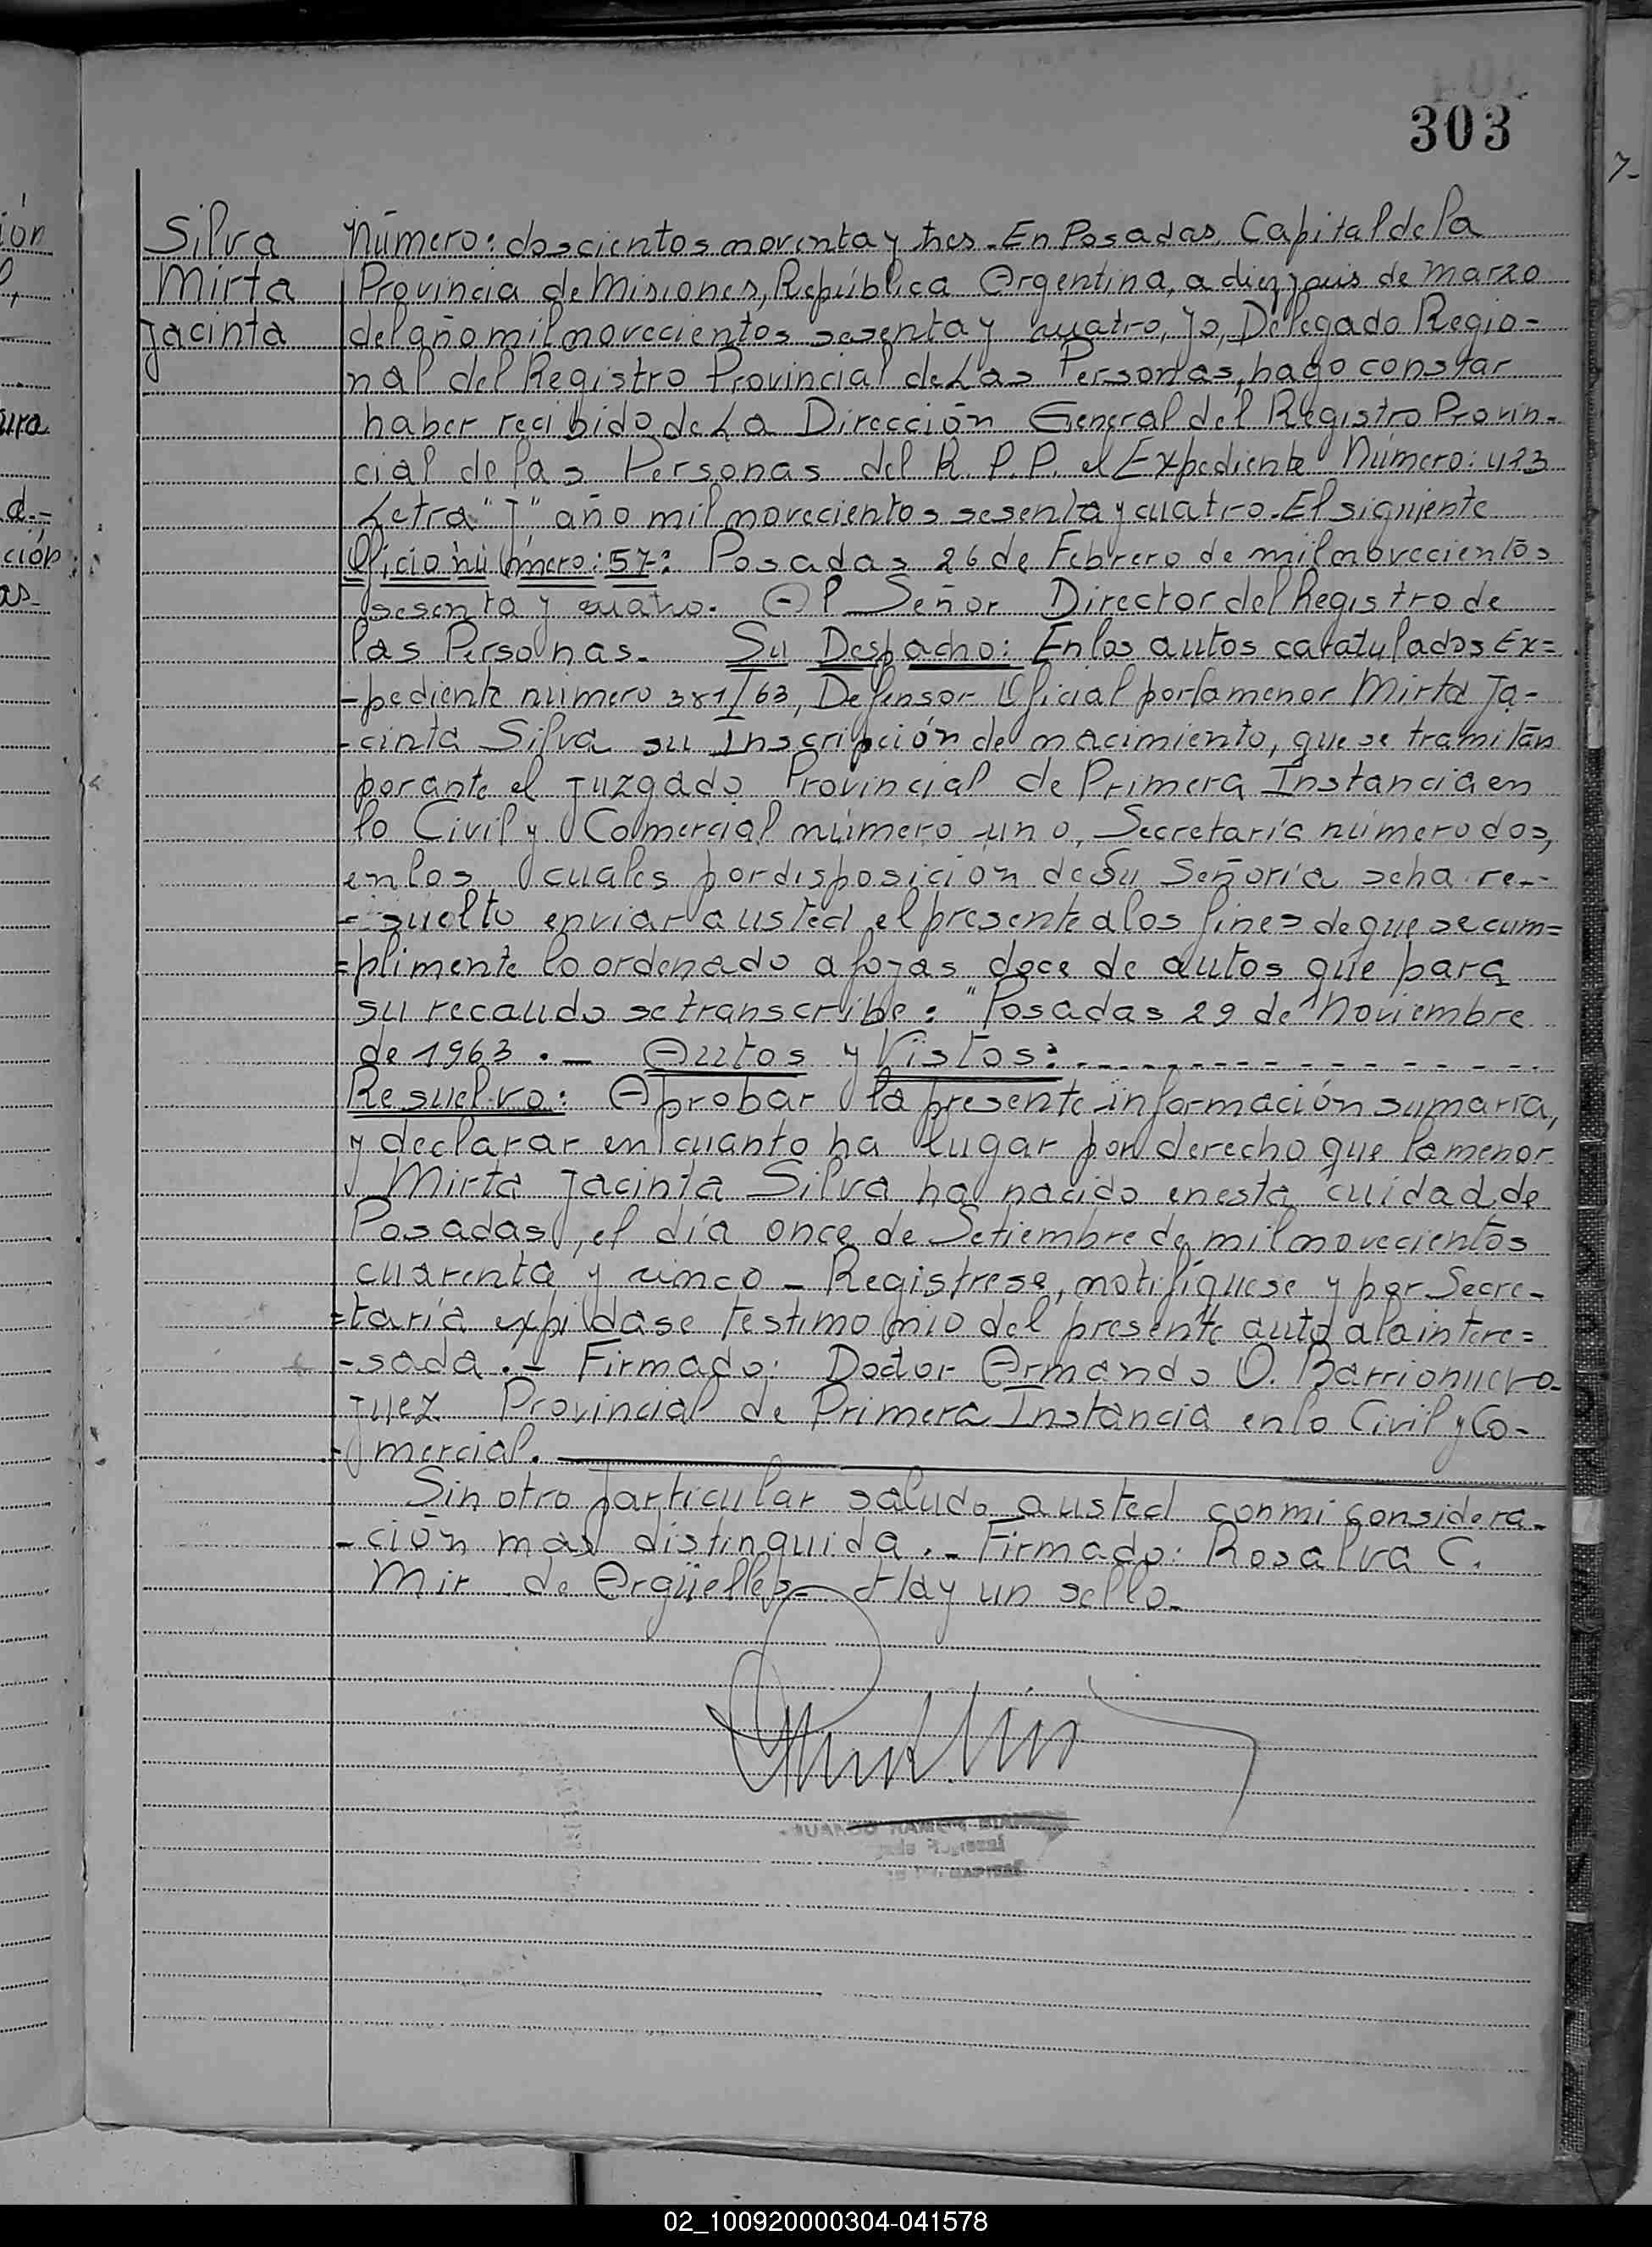 303
Silva
Mirta
Jacinta
Número: doscientos noventa y tres. En Posadas, Capital de la
Provincia de Misiones, República Argentina, a diez y seis de Marzo
del año mil novecientos sesenta y cuatro, yo, Delegado Regio-
nal del Registro Provincial de Las Personas, hago constar
haber recibido de La Dirección General del Registro Provin-
cial de las Personas del R. P. P. el Expediente Número: 423
Letra "J" año mil novecientos sesenta y cuatro. El siguiente
Oficio número: 57-: Posadas 26 de Febrero de mil novecientos
sesenta y cuatro. Al Señor Director del Registro de
las Personas. Su Despacho: En los autos caratulados Ex=
-pediente número 381/63, Defensor Oficial por la menor Mirta Ja-
-cinta Silva su Inscripción de nacimiento, que se tramitan
por ante el Juzgado Provincial de Primera Instancia en
lo Civil y Comercial número uno, Secretaría número dos,
en los cuales por disposición de Su Señoría se ha re--
-suelto enviar a usted el presente a los fines de que se cum=
=plimente lo ordenado a fojas doce de autos que para
su recaudo se transcribe: "Posadas 29 de Noviembre
de 1963.- Autos y Vistos: - - - - - - - - - - - - - - - -
Resuelvo: Aprobar la presente información sumaria,
y declarar en cuanto ha lugar por derecho que la menor
Mirta Jacinta Silva ha nacido en esta cuidad de
Posadas, el día once de Setiembre de mil novecientos
cuarenta y cinco - Registrese, notifíquese y por Secre-
=taría expidase testimonio del presente auto a la intere=
-sada.- Firmado: Doctor Armando O. Barrionuevo-
Juez Provincial de Primera Instancia en lo Civil y Co-
-mercial.
Sin otro particular saludo a usted con mi considera-
-ción más distinguida.- Firmado: Rosalva C.
Mir de Argüelles- Hay un sello-
02_100920000304-041578